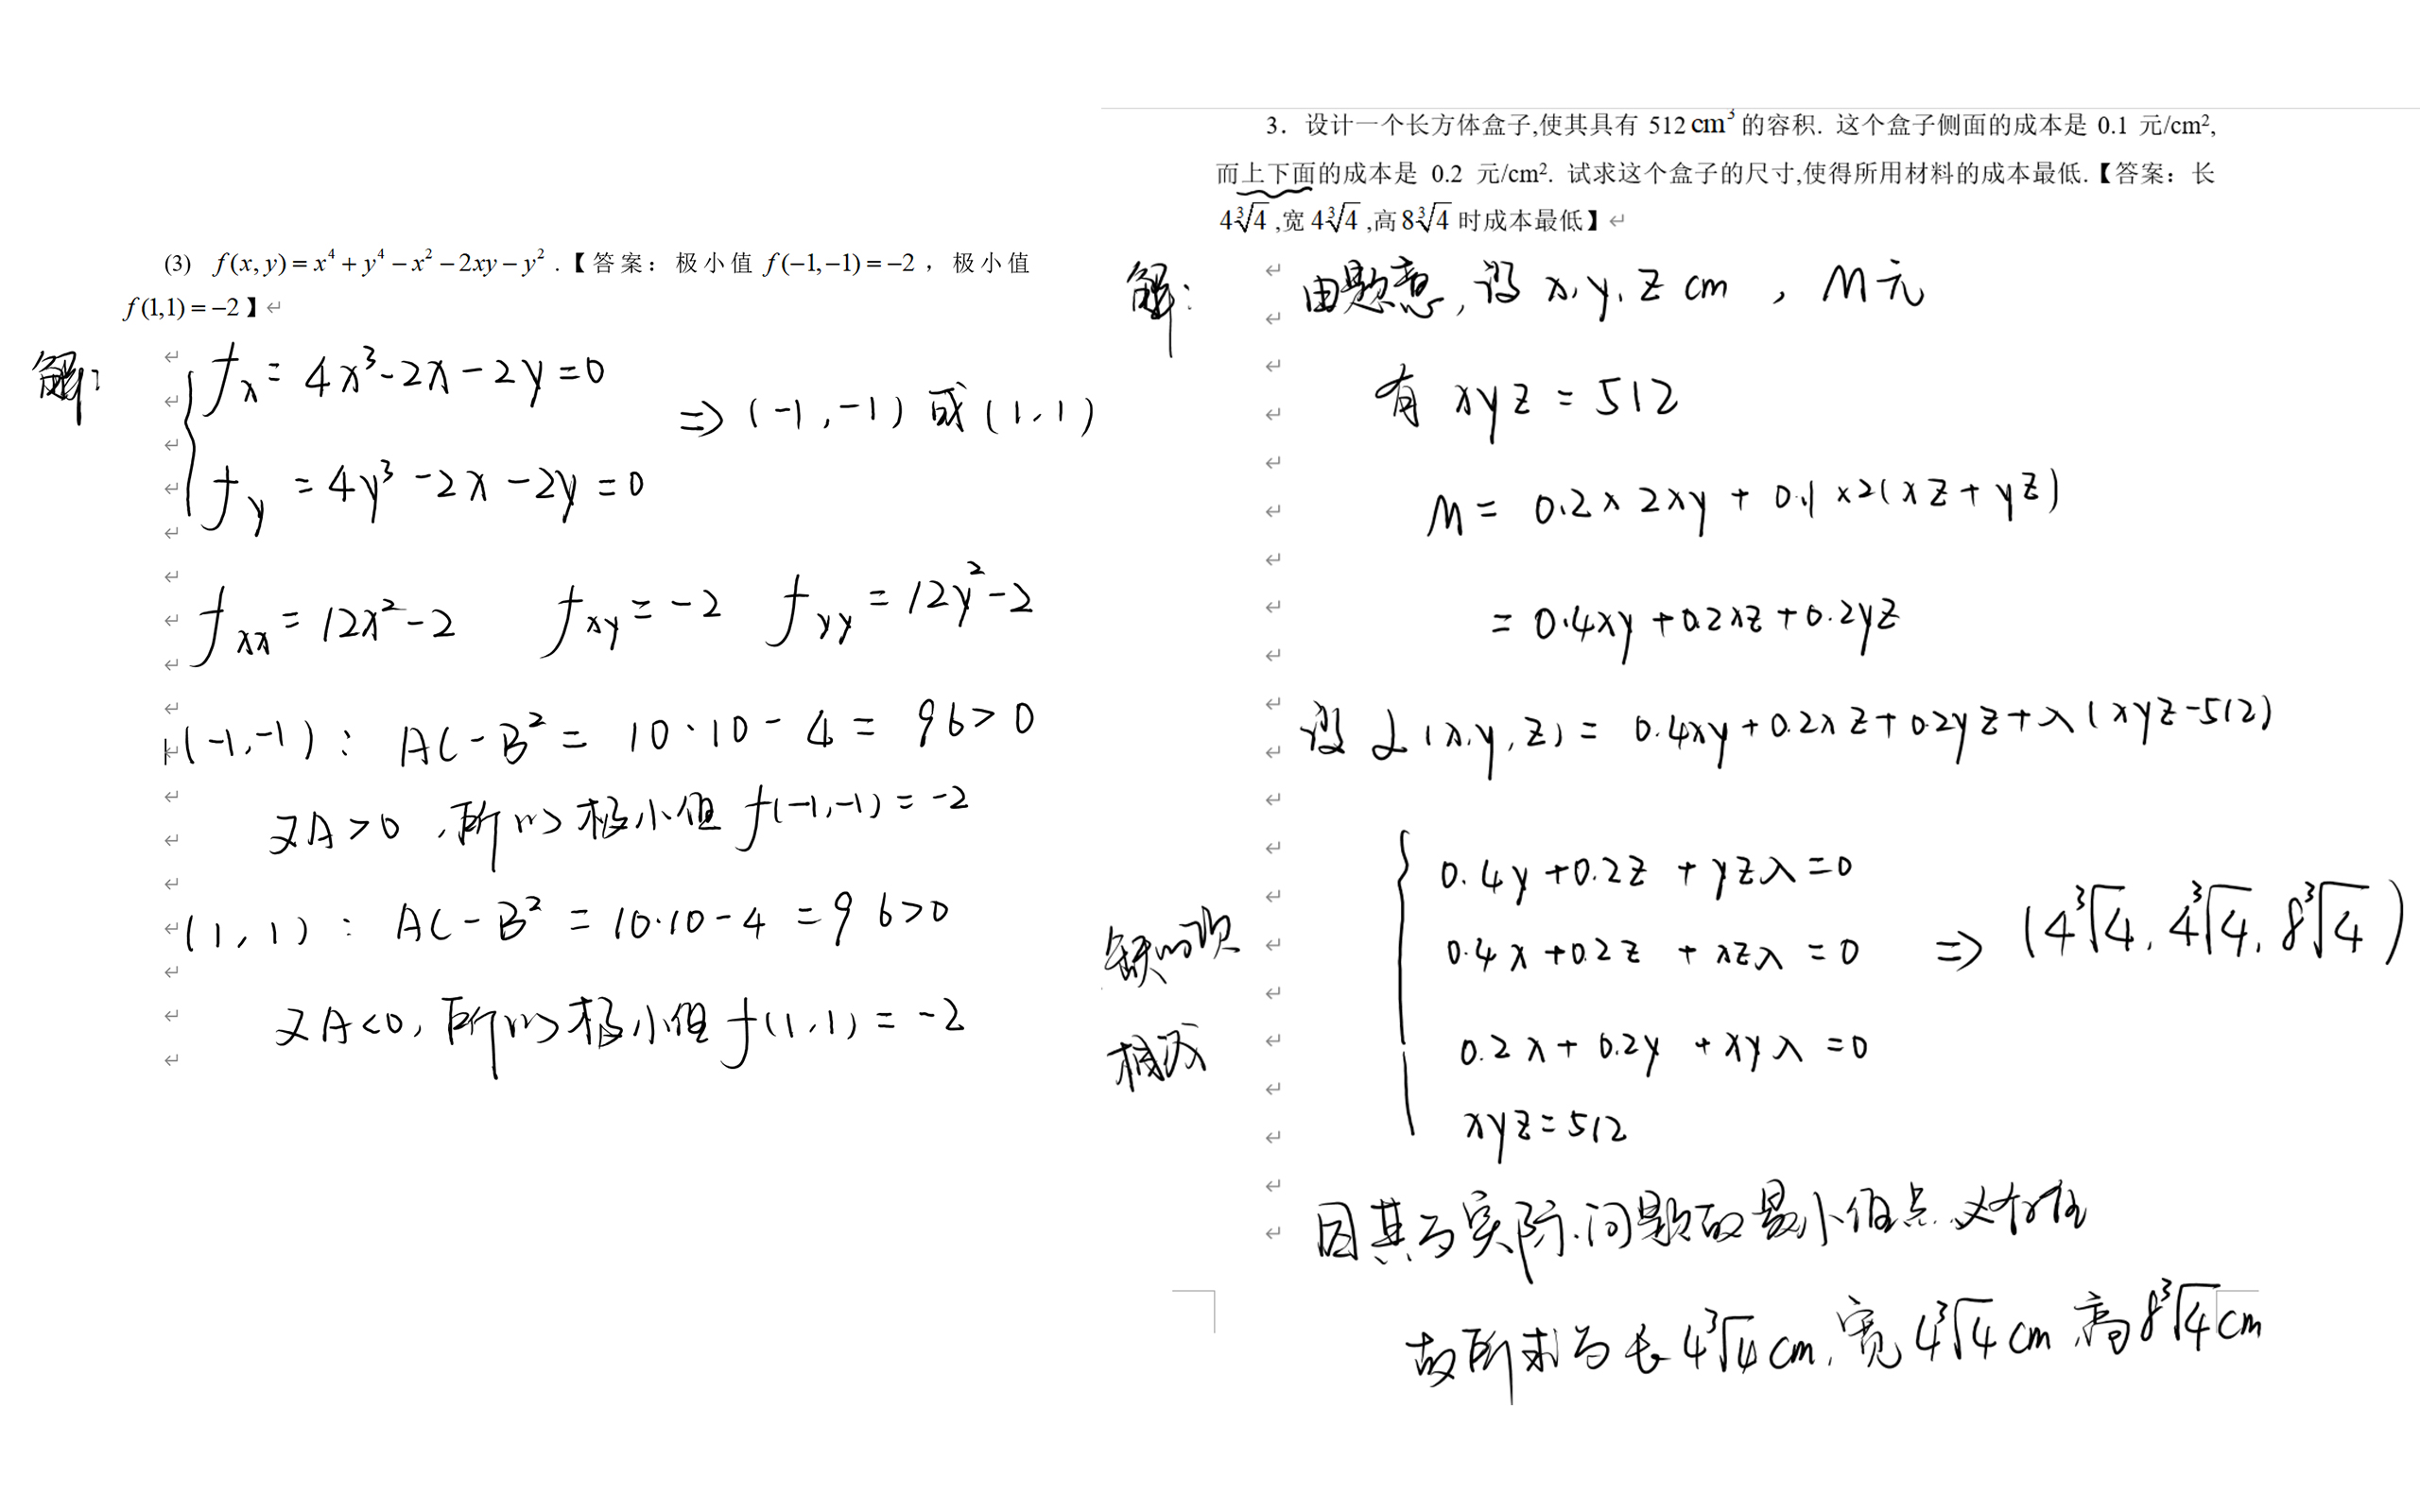 (3) f(x,y)=x⁴+y⁴−x²−2xy−y².【答案：极小值 f(−1,−1)=−2，极小值
f(1,1)=−2】
解：
fx=4x³-2x-2y=0
⇒(-1,-1)或(1,1)
fy=4y³-2x-2y=0
fxx=12x²-2 fxy=-2 fyy=12y²-2
(-1,-1)：AC-B²=10·10-4=96>0
又A>0,所以极小值f(-1,-1)=-2
(1,1)：AC-B²=10·10-4=96>0
又A<0,所以极小值f(1,1)=-2
3．设计一个长方体盒子,使其具有 512cm³的容积. 这个盒子侧面的成本是 0.1 元/cm²,
而上下面的成本是 0.2 元/cm². 试求这个盒子的尺寸,使得所用材料的成本最低.【答案：长
4∛4,宽4∛4,高8∛4时成本最低】
解：
由题意,设x,y,z cm，M元
有xyz=512
M=0.2×2xy+0.1×2(xz+yz)
=0.4xy+0.2xz+0.2yz
设L(x,y,z)=0.4xy+0.2xz+0.2yz+λ(xyz-512)
0.4y+0.2z+yzλ=0
缺的项
0.4x+0.2z+xzλ=0 ⇒(4∛4,4∛4,8∛4)
相減
0.2x+0.2y+xyλ=0
xyz=512
因其为实际问题故最小值点必存在
故所求为长4∛4cm,宽4∛4cm高8∛4cm